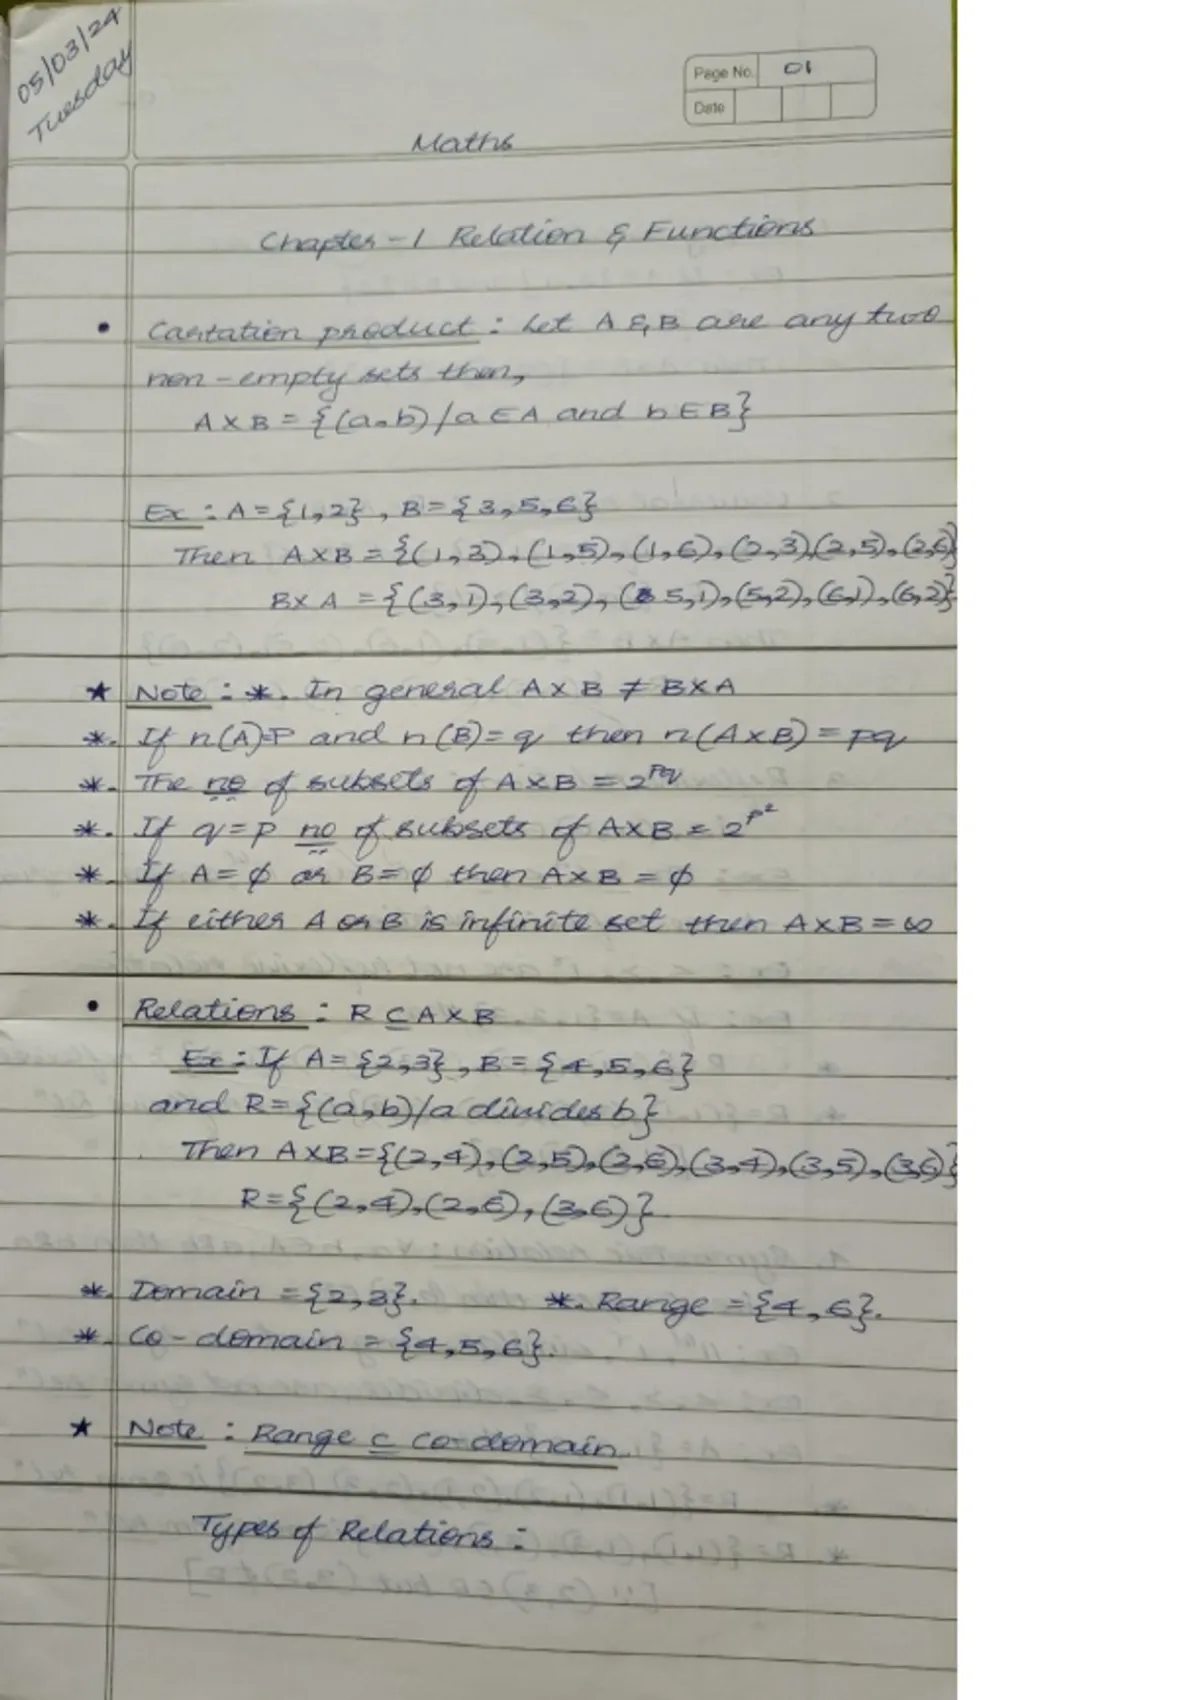 05/03/24
Tuesday
Page No. 01
Date
Maths
Chapter-1 Relation & Functions
• Cartation product : Let A & B are any two
non-empty sets then,
A × B = {(a,b)/a ∈ A and b ∈ B}
Ex : A = {1,2}, B = {3,5,6}
Then A×B = {(1,3),(1,5),(1,6),(2,3),(2,5),(2,6)}
B×A = {(3,1),(3,2),(5,1),(5,2),(6,1),(6,2)}
★ Note : *. In general A×B ≠ B×A
*. If n(A)=P and n(B)=q then n(A×B) = pq
*. The no of subsets of A×B = 2^pq
*. If q=p no of subsets of A×B = 2^p²
*. If A=ϕ or B=ϕ then A×B = ϕ
*. If either A or B is infinite set then A×B = ∞
• Relations : R ⊆ A×B
Ex : If A = {2,3}, B = {4,5,6}
and R = {(a,b)/a divides b}
Then A×B = {(2,4),(2,5),(2,6),(3,4),(3,5),(3,6)}
R = {(2,4),(2,6),(3,6)}
*. Domain = {2,3}. *. Range = {4,6}.
*. Co-domain = {4,5,6}.
★ Note : Range ⊆ co-domain.
Types of Relations :